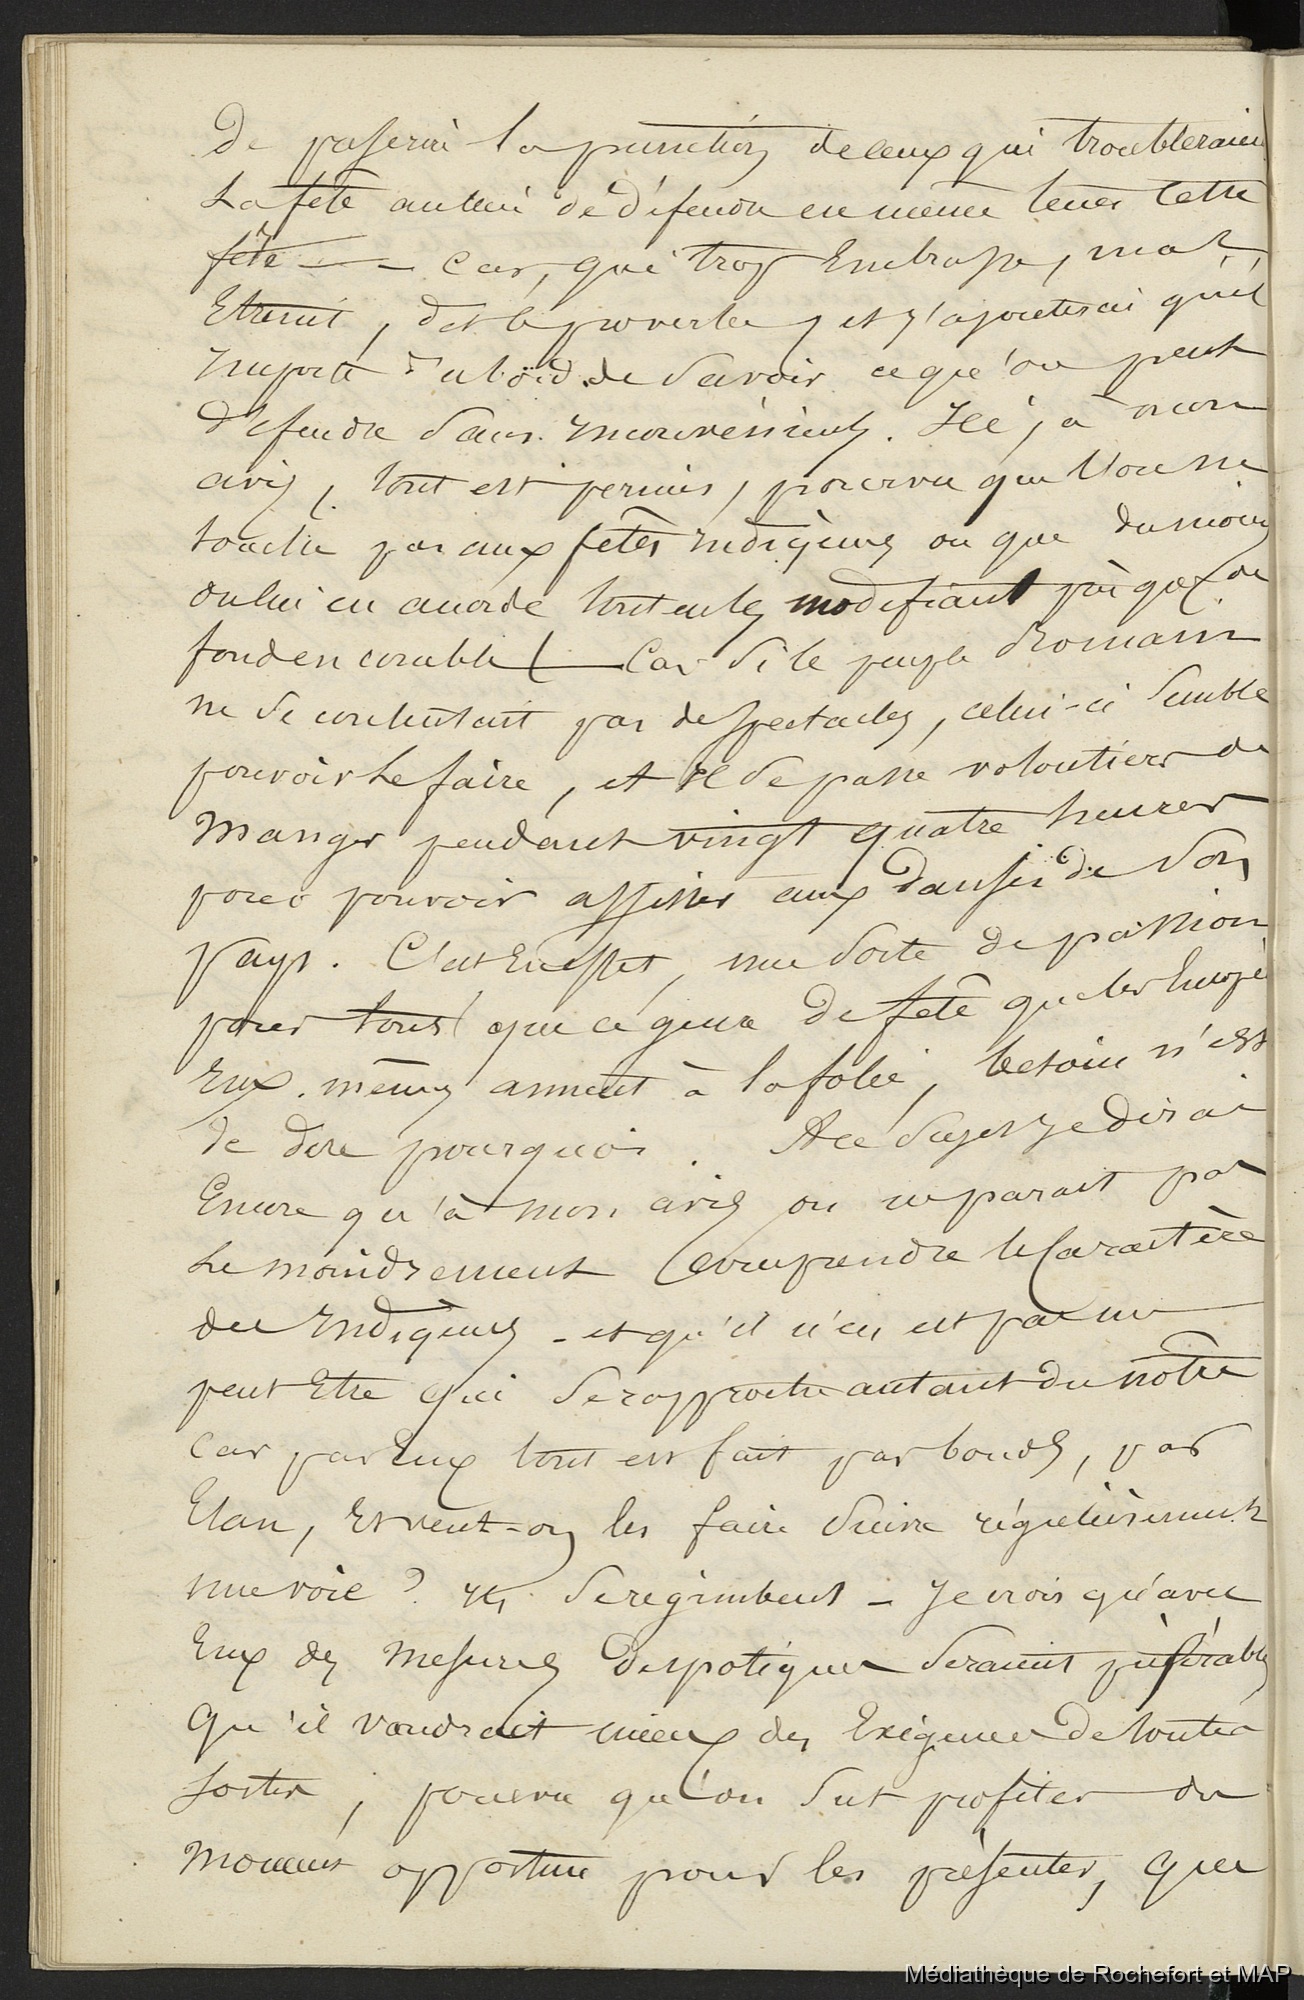 De la punition de ceux qui troubleraient
La fête au lieu de défendre en même temps cette
fête — car, qui trop Embrasse, mal
Etreint, dit le proverbe, et j'ajouterai qu'il
importe d'abord de Savoir ce qu'on peut
défendre Sans inconvénients. Ici, à mon
avis, tout est permis, pourvu que l'on ne
touche pas aux fêtes indigènes ou que du moins
on lui en accorde tout en les modifiant
fond en comble — Car Si le peuple Romain
ne Se contentait pas de Spectacles, celui-ci Semble
pouvoir Le faire, et il Se passe volontiers de
Manger pendant vingt quatre heures
pour pouvoir assister aux danses de Son
pays. C'est En effet, une Sorte de passion
pour tous que ce genre de fête que les Europé
Eux-mêmes aiment à la folie, besoin n'est
de dire pourquoi. A ce Sujet je dirai
Encore qu'à mon avis on ne parait pas
Le moindrement Comprendre le Caractère
des Indigènes - et qu'il n'en est pas un
peut Etre qui Se rapproche autant du nôtre
car par Eux tout est fait par bonds, par
Elan, Et veut-on les faire Suivre régulièrement
une voie ? ils Se regimbent — Je crois qu'avec
Eux des Mesures Despotiques Seraient préférables
Qu'il vaudrait mieux des Exigences de toutes
Sortes, pourvu qu'on Sut profiter du
Moment opportun pour les présenter, que
Médiathèque de Rochefort et MAP